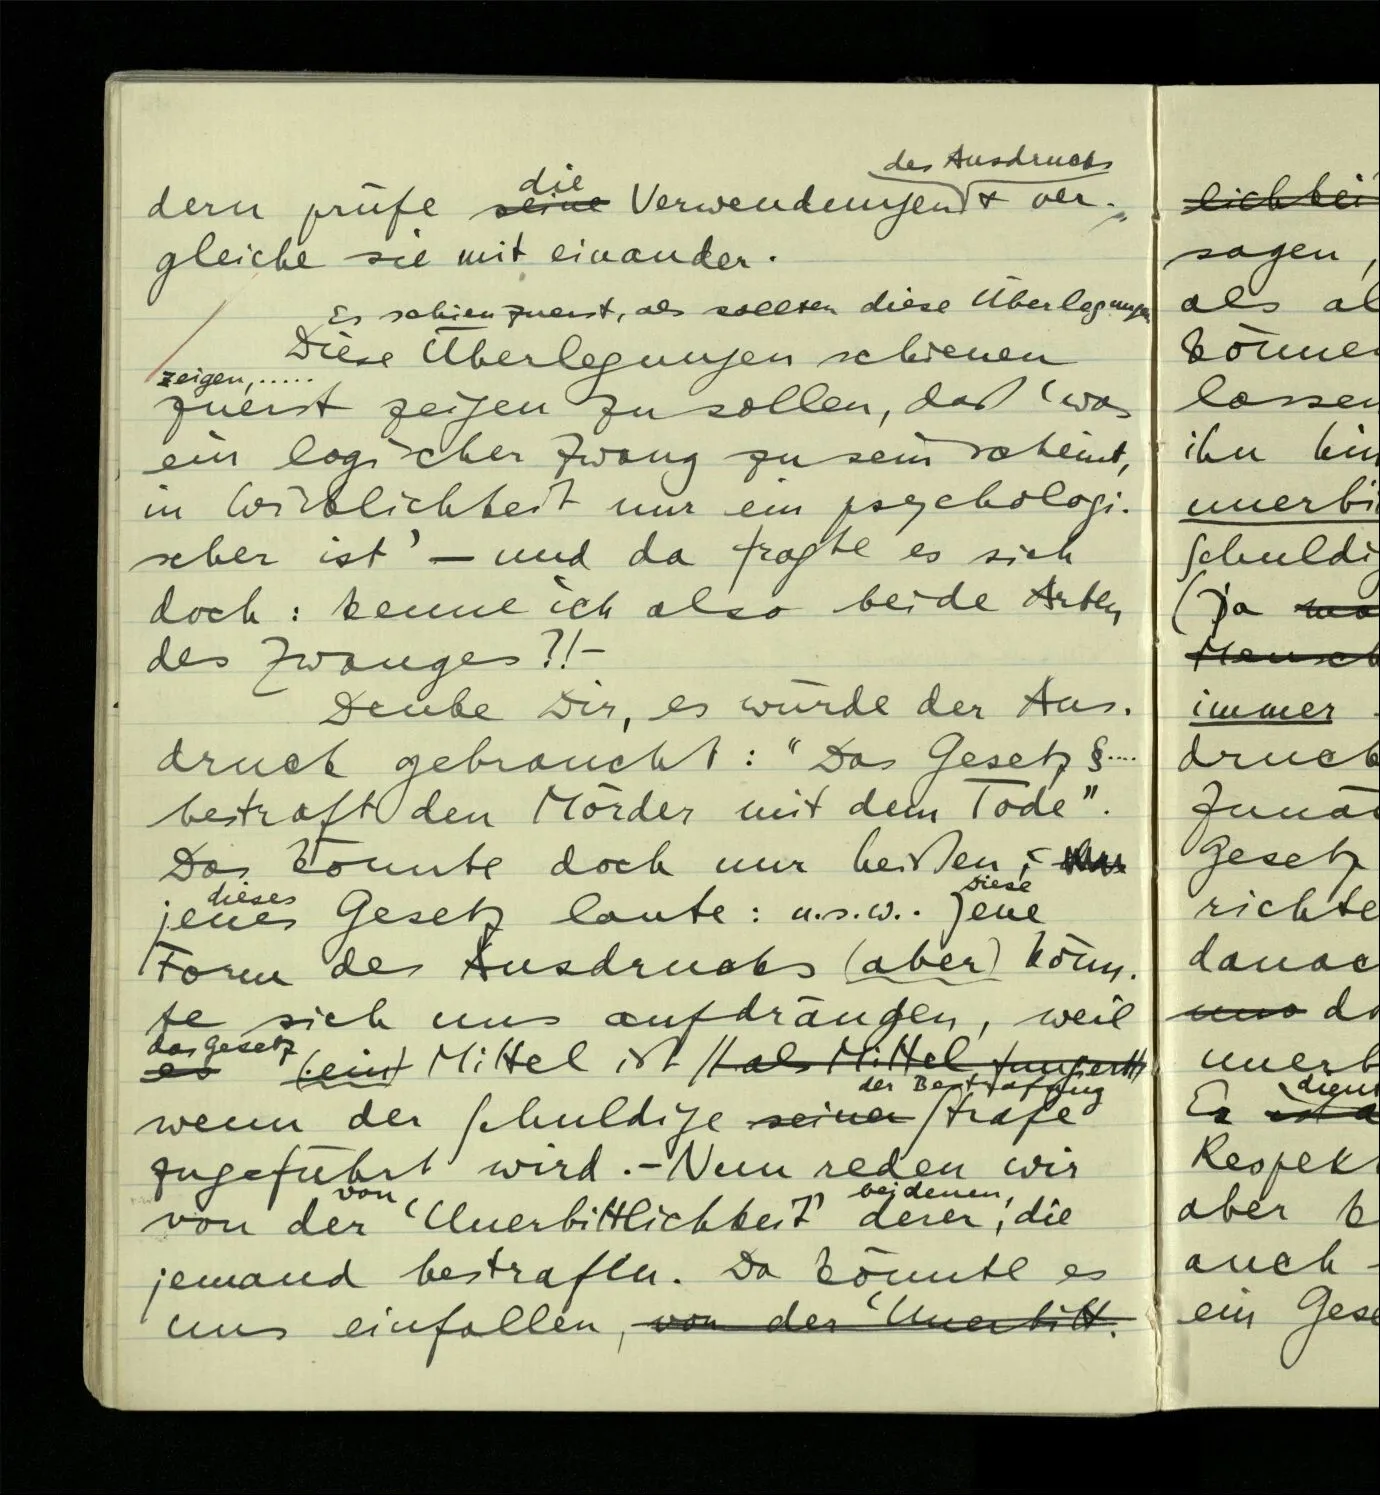 des Ausdrucks
die
dern prüfe seine Verwendungen & ver-
gleiche sie mit einander.
Es schien zuerst, als sollten diese Überlegungen
Diese Überlegungen schienen
zeigen,.....
zuerst zeigen zu sollen, daß 'was
ein logischer Zwang zu sein scheint,
in Wirklichkeit nur ein psychologi-
scher ist' – und da fragte es sich
doch: kenne ich also beide Arten
des Zwanges?! –
Denke Dir, es würde der Aus-
druck gebraucht: "Das Gesetz §....
bestraft den Mörder mit dem Tode".
Das könnte doch nur heißen,
dieses
jenes Gesetz laute: u.s.w.. Jene
Diese
Form des Ausdrucks (aber) könn-
te sich uns aufdrängen, weil
das Gesetz
es (ein) Mittel ist als Mittel fungiert
der Bestrafung
wenn der Schuldige seiner Strafe
zugeführt wird. – Nun reden wir
von bei denen,
von der 'Unerbittlichkeit' derer, die
jemand bestrafen. Da könnte es
uns einfallen, von der 'Unerbitt-
lichkei
sagen,
als al
können
lassen
ihn hin
unerbi
Schuldig
(ja
Mensch
immer
druck
Zunä
Gesetz
richte
danac
und da
unerb
dient
Es ist a
Respekt
aber k
auch -
ein Gese